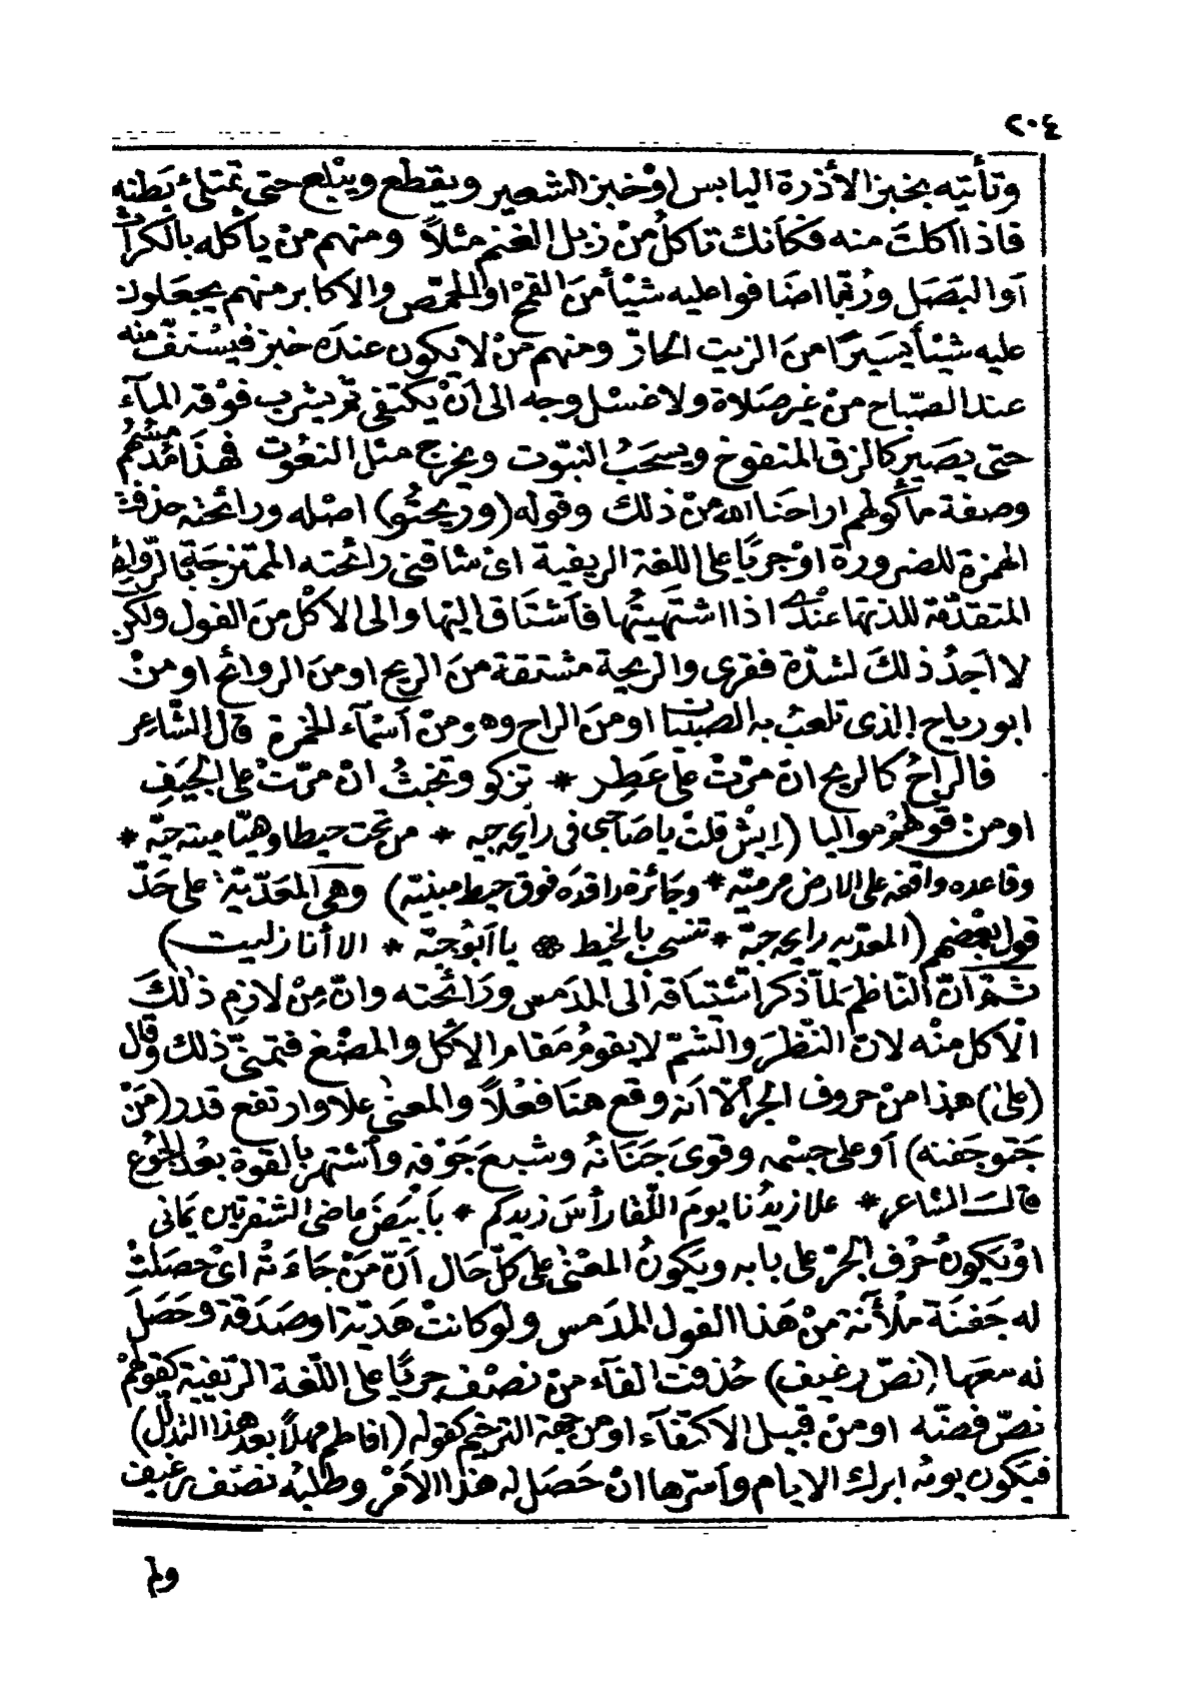 ٢٠٤
وتأتيه بخبز الأذرة اليابس اوْخبز الشعير ويقطع ويبْلع حتى تمتلئ بَطنه
فاذا اكلتَ منه فكأنك تاكلُ منْ زبل الغنم مثلاً ومنهم منْ ياْكله بالكرّاث
أوا لبَصَل ورُبّما اضَا فوا عليه شيْأ منَ القمْح اوالحمّص والاكابر منهم يجعَلون
عليه شيْأ يسيَرًا منَ الزيت الحارّ ومنهم منْ لا يكون عندَه خبز فيسْتفّ منه
عند الصّباح منْ غير صَلاة ولا غسْل وجه الى انْ يكتفى ثمّ يشرب فوْقه المآء
حتى يصَير كالزق المنفوخ ويسحَبُ النبّوت ويخرج مثل النعُوت فهذَا مُدمّسهُم
وصفة مأكولهم اراحَنا الله منْ ذلك وقوله (وريحتُو) اصْله ورائحته حذفت
الهمزة للضرورة اوْجريًا على اللغة الريفية اىْ شاقنى رائحته الممتزجَة بالرّوائح
المتقدّمة للذتها عنْدى اذا اشتهَيتُها فأشتَاق اليها والى الاكْل منَ الفول ولكنْ
لا اجَدُ ذلكَ لشدّة فقرى والريحة مشتقة منَ الريح اومنَ الروائح او منْ
ابو رياح الذى تلعبُ به الصبيان اومنَ الراح وهو منْ أسْمآء الخمرة قال الشّاعر
فالراحُ كالريح انْ مرّتْ على عَطِر * تزكو وتخبثُ انْ مرّتْ على الجيَفِ
او منْ قولهمْ مواليا (اِيشْ قلتْ يا صَاحبى فى رايحه جيه * من تحت حيطا وهيّا ميته حيّه *
وقاعده واقفه على الارض مرميّه * وجَائزه راقدَه فوق حيط مبنيّه) وهى المعَدّيّة على حَدّ
قول بعْضهم (المعدّيه رايحه جيّه * تنسحب بالخيط * يا أبُوجيّه * الا أنا زليت)
ثمّ انّ النّاظم لمآ ذكر اشْتيَاقه الى المدَمس ورَائحته وانّ مِنْ لازم ذلكَ
الْاكل منْه لانّ النّظرَ والشّمّ لا يقومُ مَقام الاكْل والمضْغ فتمنّى ذلك وَقال
(على) هذا منْ حروف الجرّ الّا انّه وقع هنَا فعْلاً والمعنى علا وارتفع قدر (مَنْ
جَتو جَفنه) أوعلى جسْمه وقوىَ جَنَانهُ وشبعَ جَوْفه واشْتهر بالقوة بعْد الجُوع
قالت الشاعر * علا زيدُنا يومَ اللّقا رأسَ زيدكم * بأبْيَضَ ماضى الشفرتين يَمانى
اوْيكونُ حُرْف الجرّ على بابه ويَكونُ المعْنى على كلّ حَال أنّ مَنْ جَاءَتهُ اىْ حصَلتْ
له جَفنَة ملْأنة منْ هَذا الفول المدَمس ولوكانتْ هَديّة اوصَدَقة وحَصَلَ
له معَها (نصّ رغيف) حُذفت الفآء منْ نصْف جريًا على اللّغة الرّيفية كقولهمْ
نصّ فضّه اومنْ قبيل الاكتفآء اومن جهة الترخيم كقوله (افاطم مهلاً بعد هذا التدلّل)
فيكون يومُه ابرك الايام وأسَرّها انْ حَصَل له هذا الاَمْر وطلبُه نصْف رغيف
ولم